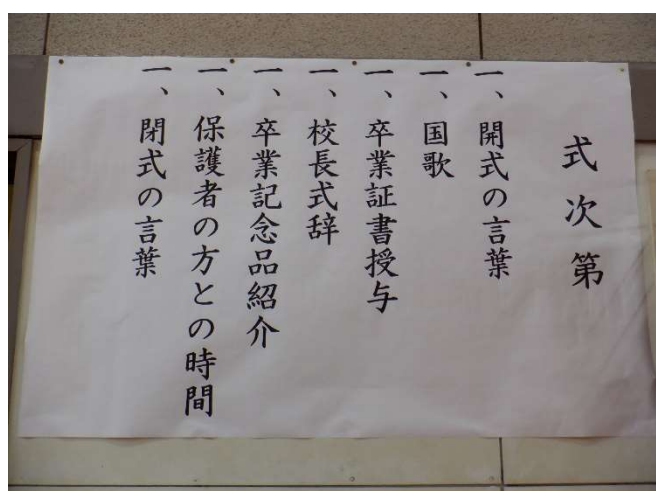 式次第
一、開式の言葉
一、国歌
一、卒業証書授与
一、校長式辞
一、卒業記念品紹介
一、保護者の方との時間
一、閉式の言葉